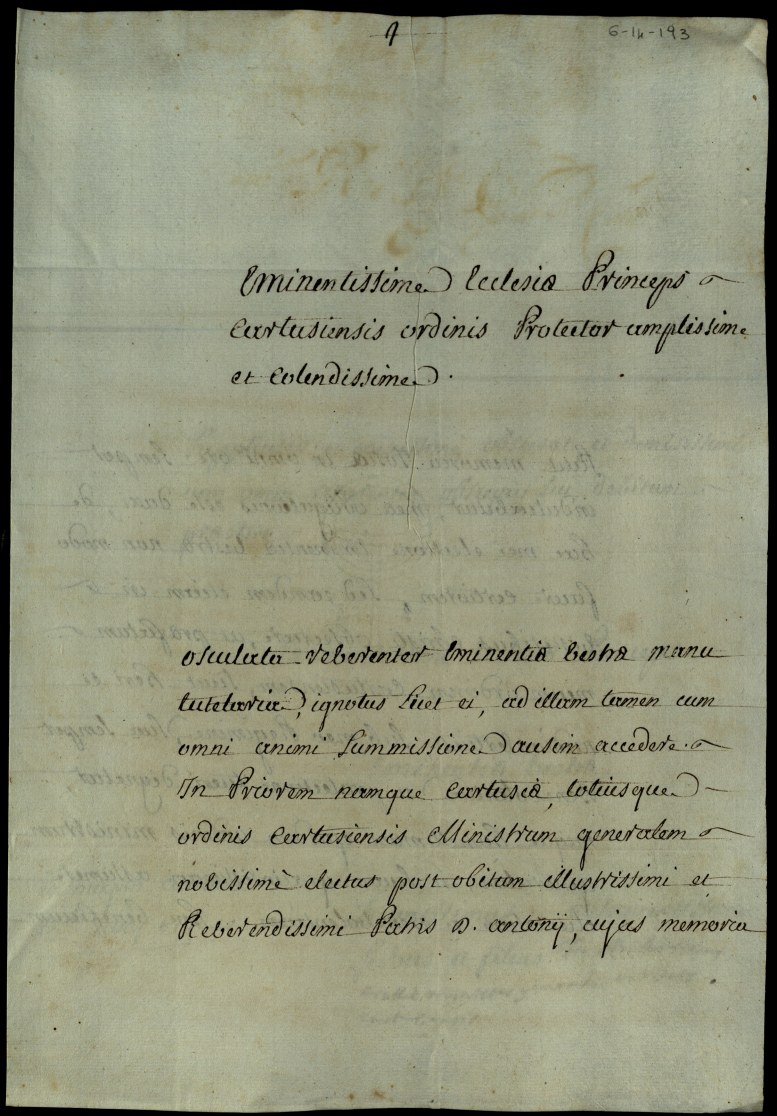 6-14-193
Eminentissime Ecclesiæ Princeps
Cartusiensis ordinis Protector amplissime
et Colendissime.
osculata reverenter Eminentiæ vestræ manu
tutelaria, ignotus licet ei, ad illam tamen cum
omni animi summissione ausim accedere.
In Priorem namque Cartusiæ, totiusque
ordinis Cartusiensis Ministrum generalem
novissimè electus post obitum illustrissimi et
Reverendissimi Patris D. antonij, cujus memoria